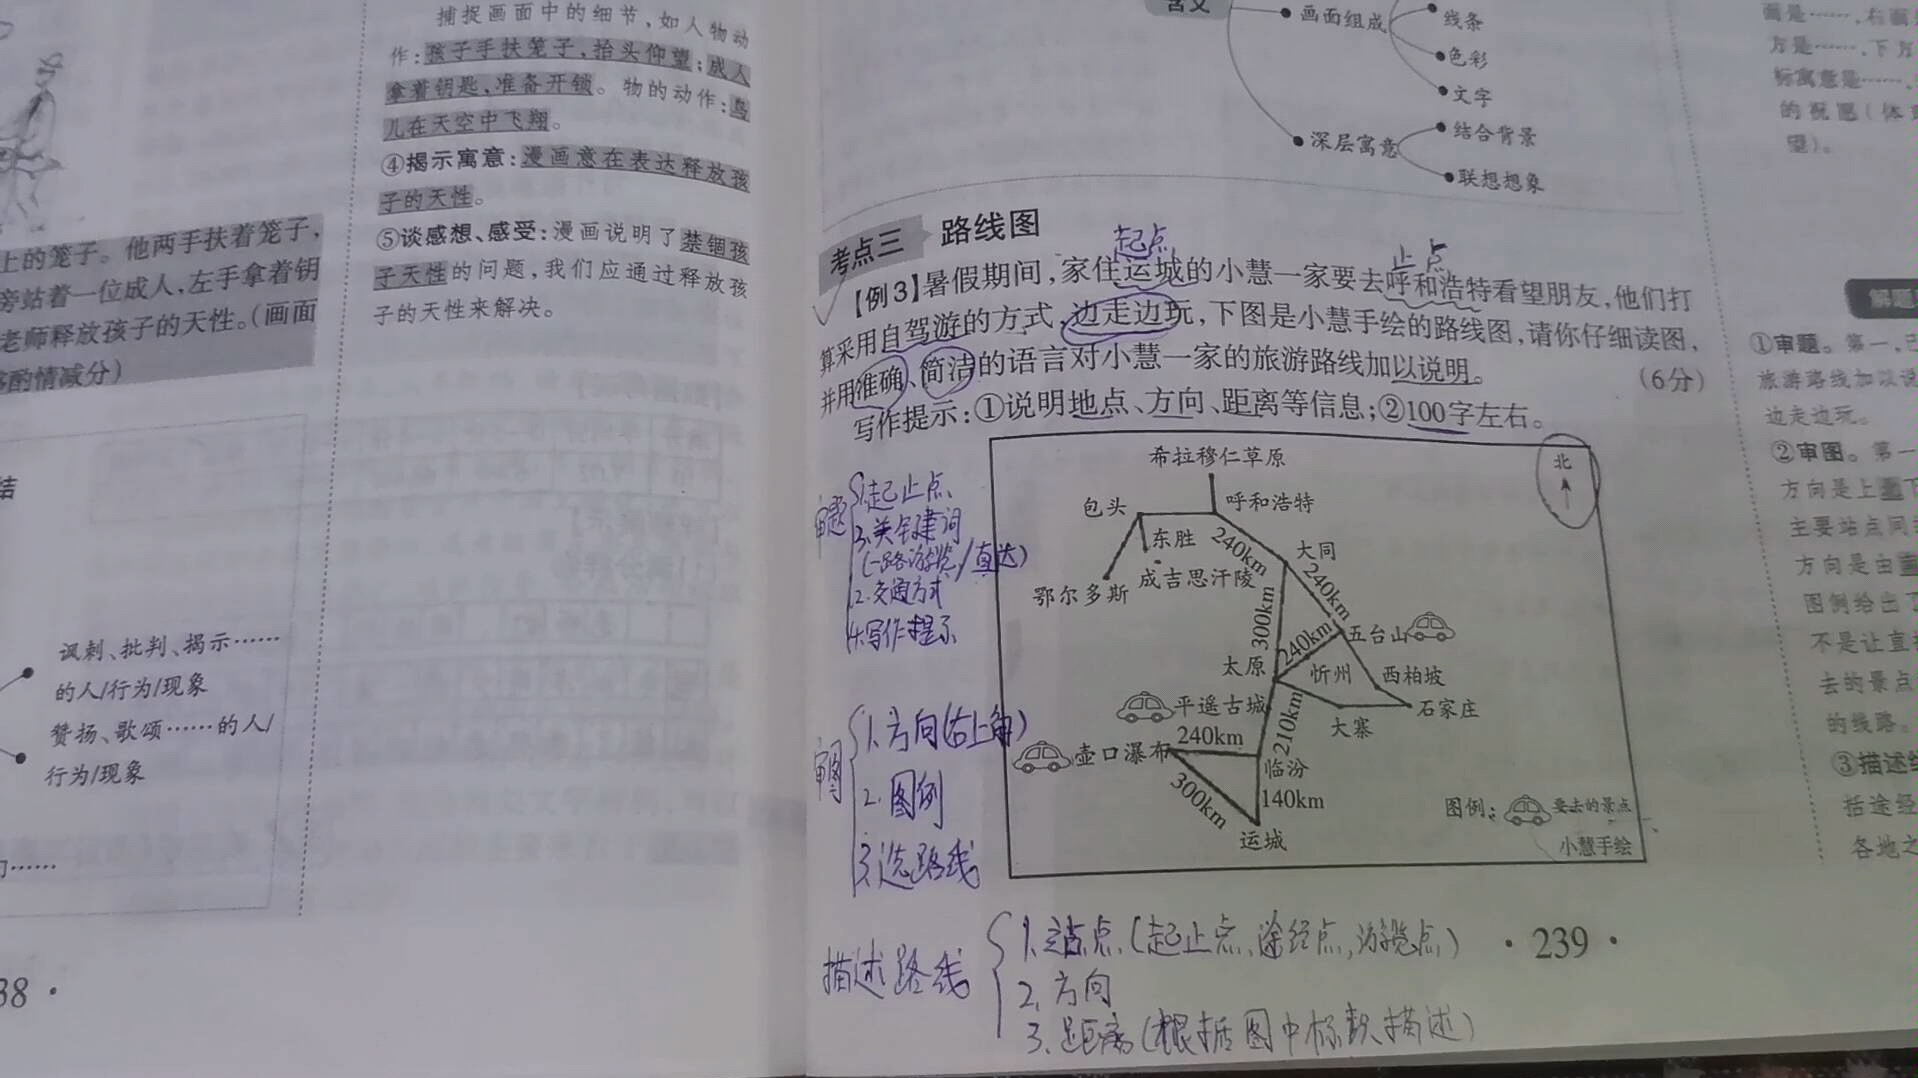 上的笼子。他两手扶着笼子,
旁站着一位成人,左手拿着钥
老师释放孩子的天性。(画面
酌情减分)
结
讽刺、批判、揭示……
的人/行为/现象
赞扬、歌颂……的人/
行为/现象
……
38 ·
捕捉画面中的细节,如人物动
作:孩子手扶笼子,抬头仰望;成人
拿着钥匙,准备开锁。物的动作:鸟
儿在天空中飞翔。
④揭示寓意:漫画意在表达释放孩
子的天性。
⑤谈感想、感受:漫画说明了禁锢孩
子天性的问题,我们应通过释放孩
子的天性来解决。
含义
画面组成
线条
色彩
文字
深层寓意
结合背景
联想想象
考点三 路线图
起点
止点
【例3】暑假期间,家住运城的小慧一家要去呼和浩特看望朋友,他们打
算采用自驾游的方式,边走边玩,下图是小慧手绘的路线图,请你仔细读图,
并用准确、简洁的语言对小慧一家的旅游路线加以说明。 (6分)
写作提示:①说明地点、方向、距离等信息;②100字左右。
审题
1.起止点
3.关键词
(一路游览/直达)
2.交通方式
4.写作提示
审图
1.方向(右上角)
2.图例
3.选路线
希拉穆仁草原
北
包头
呼和浩特
东胜
240km
大同
成吉思汗陵
鄂尔多斯
240km
300km
240km
五台山
太原
忻州
西柏坡
平遥古城
210km
大寨
石家庄
240km
壶口瀑布
临汾
300km
140km
运城
图例:
要去的景点
小慧手绘
描述路线
1.站点(起止点,途经点,游览点)
2.方向
3.距离(根据图中标数描述)
· 239 ·
面是……,右面
方是……,下方
标寓意是……
的祝愿(体
望)。
解题
①审题。第一,已
旅游路线加以说
边走边玩。
②审图。第一
方向是上
主要站点间
方向是由
图例给出了
不是让直
去的景点
的线路。
③描述
括途经
各地之